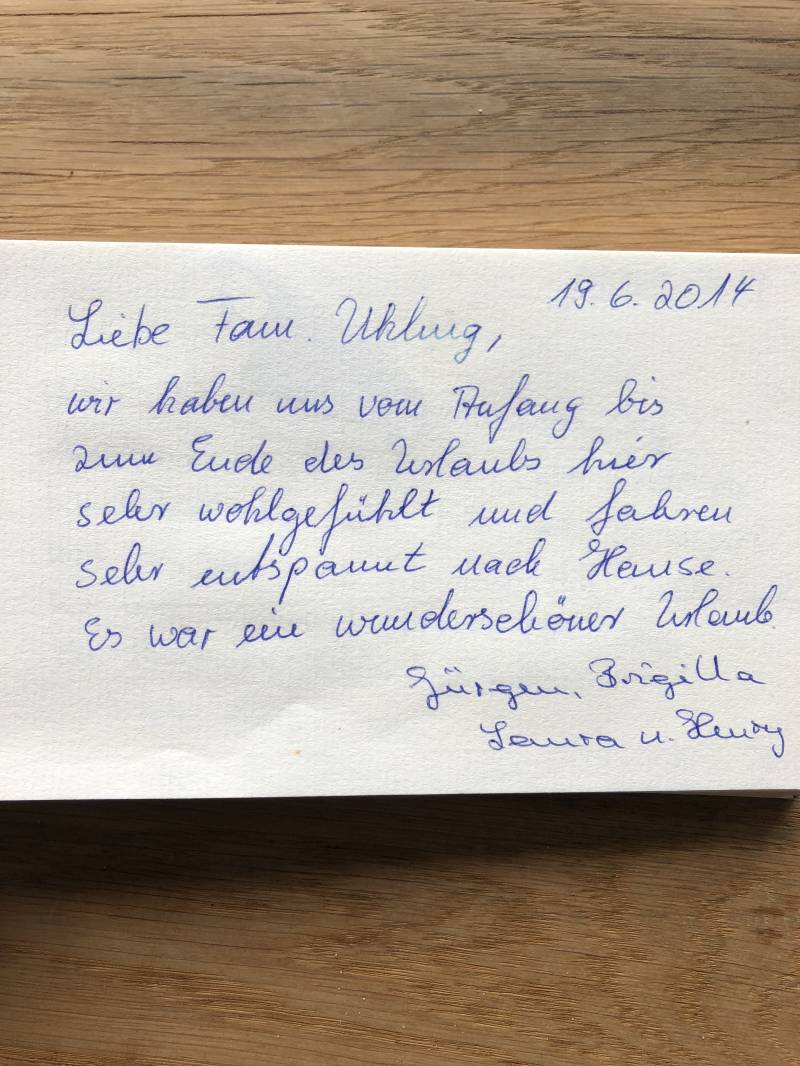 19.6.2014
Liebe Fam. Uhlmg,
wir haben uns vom Anfang bis
zum Ende des Urlaubs hier
sehr wohlgefühlt und fahren
sehr entspannt nach Hause.
Es war ein wunderschöner Urlaub.
Jürgen, Brigitta
Laura u. Henry